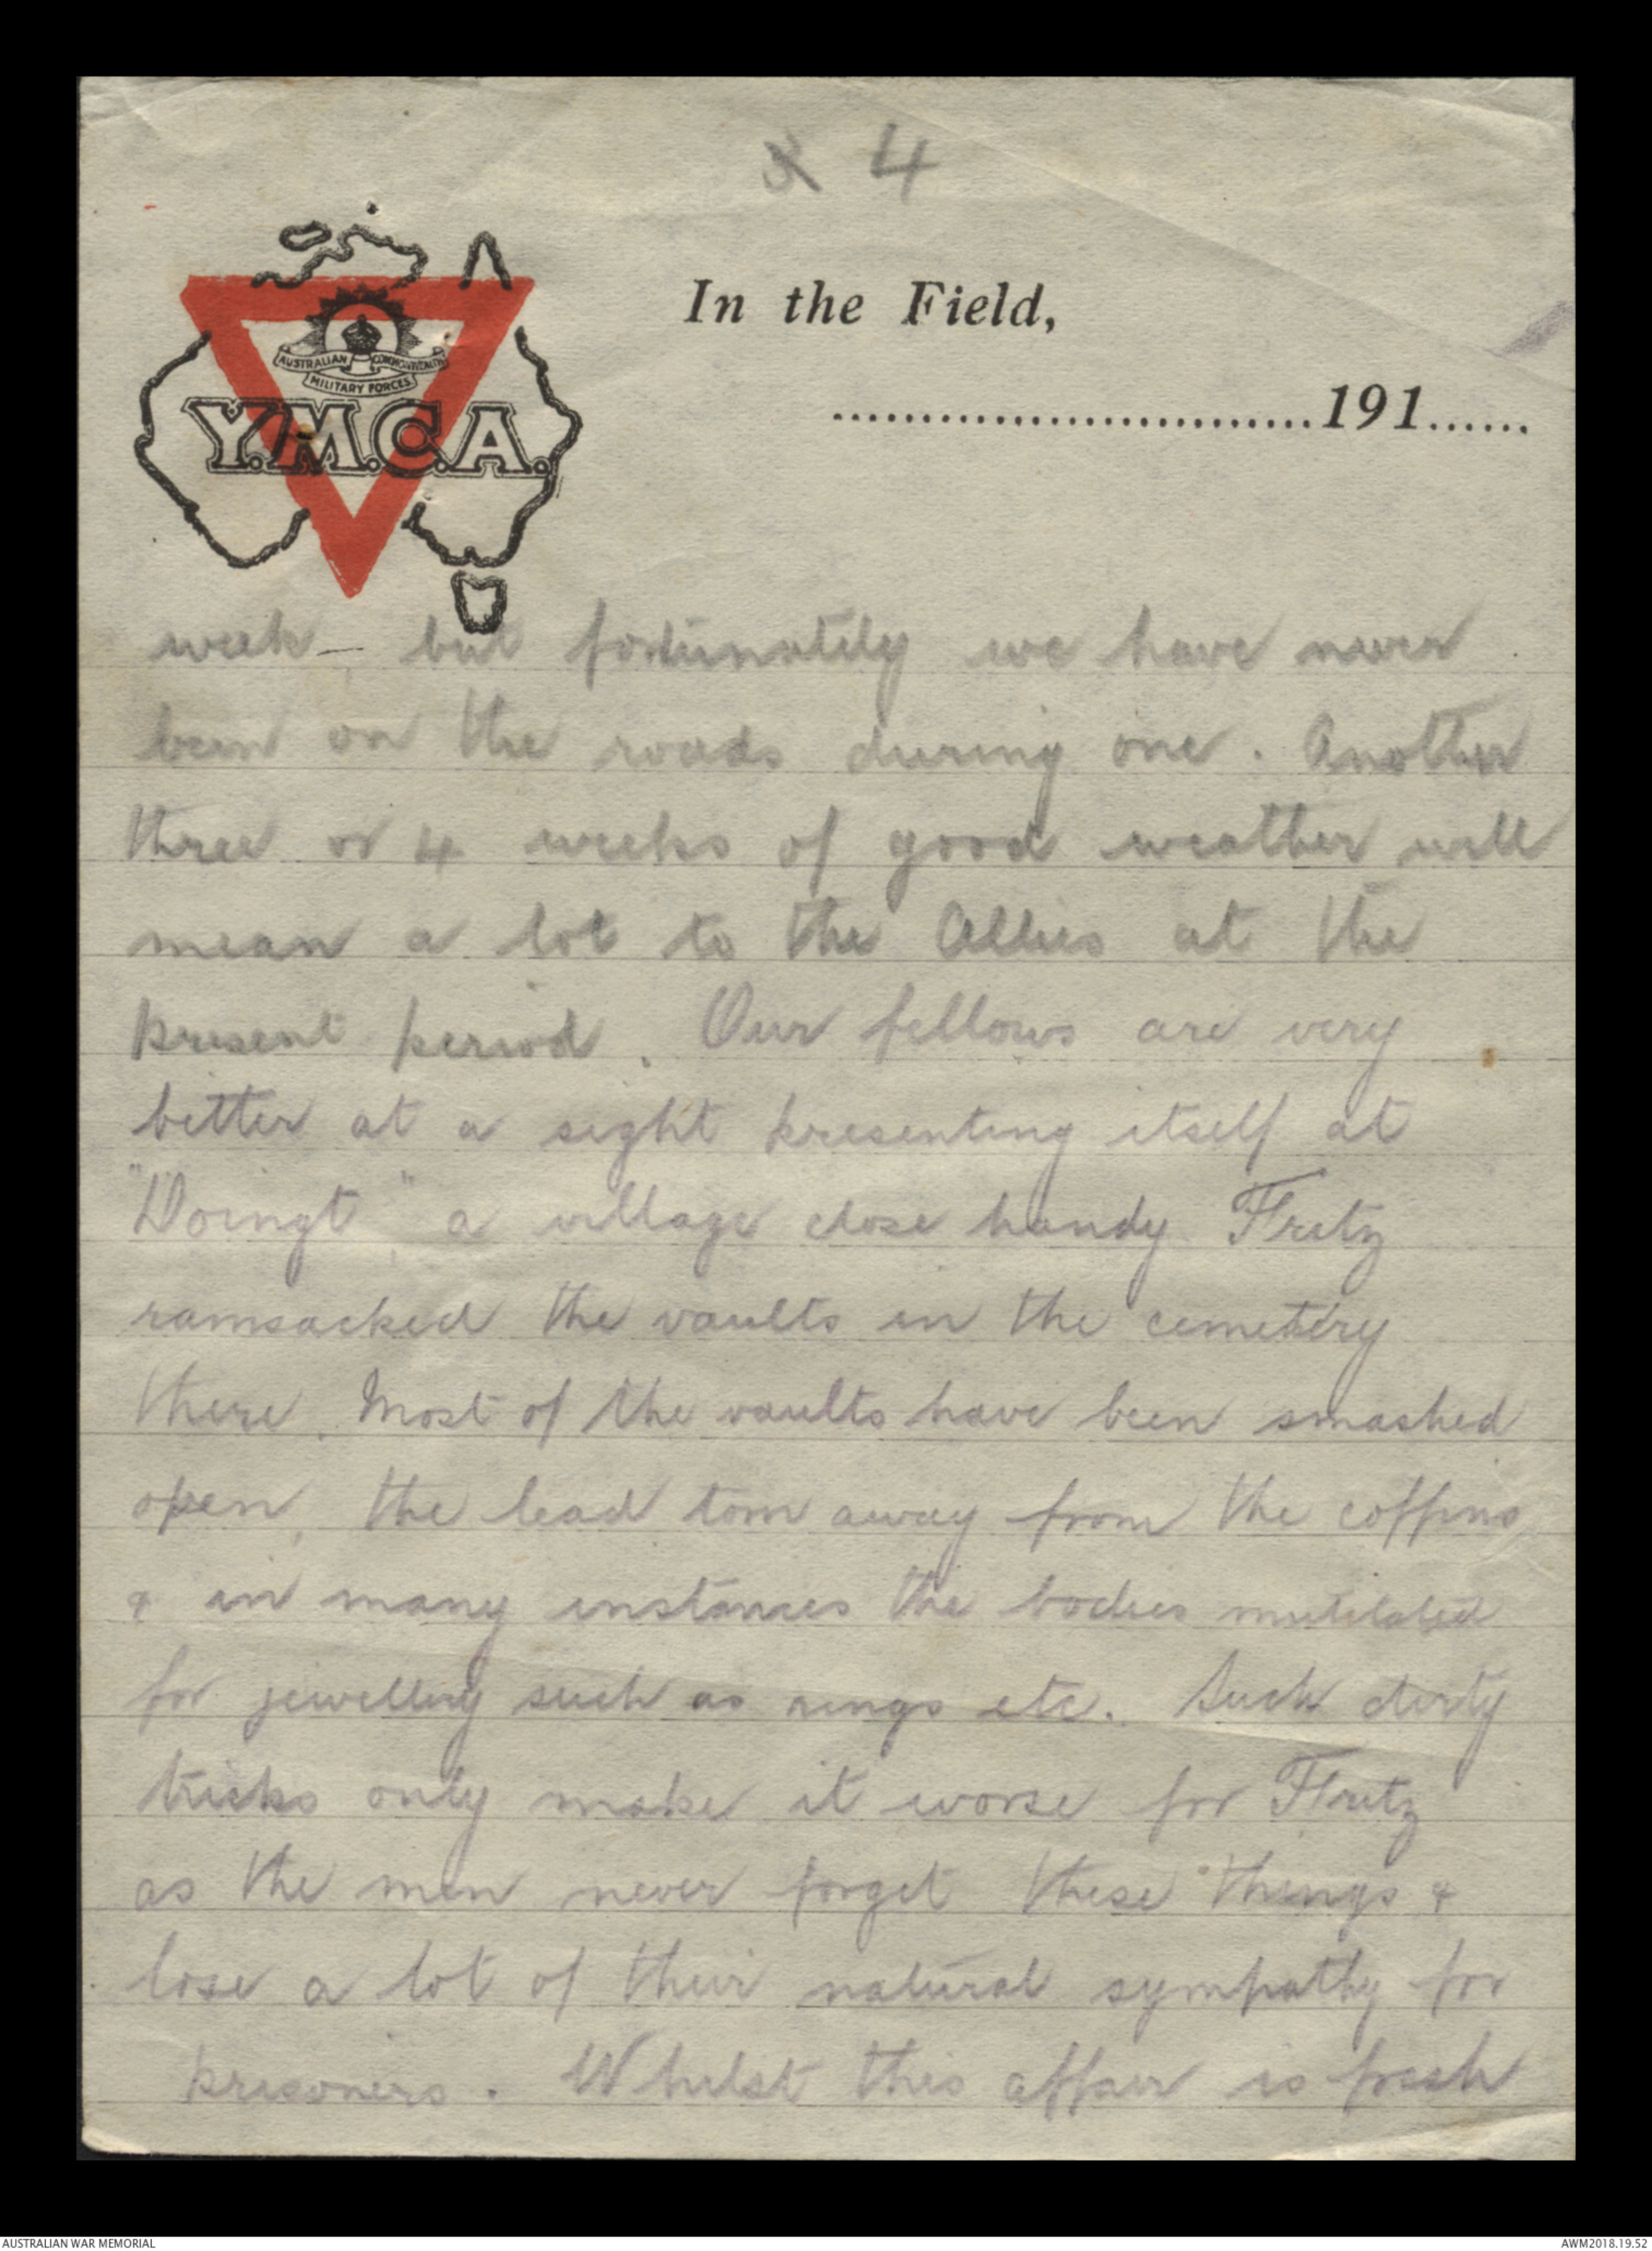 3 4
In the Field,
............................191......
AUSTRALIAN COMMONWEALTH
MILITARY FORCES
Y.M.C.A.
week, – but fortunately we have never
been on the roads during one. Another
three or 4 weeks of good weather will
mean a lot to the Allies at the
present period. Our fellows are very
bitter at a sight presenting itself at
"Doingt", a village close handy Fritz
ramsacked the vaults in the cemetery
there. Most of the vaults have been smashed
open, the lead torn away from the coffins
& in many instances the bodies mutilated
for jewellery such as rings etc. Such dirty
tricks only make it worse for Fritz
as the men never forget these things &
lose a lot of their natural sympathy for
prisoners. Whilst this affair is fresh
AUSTRALIAN WAR MEMORIAL
AWM2018.19.52